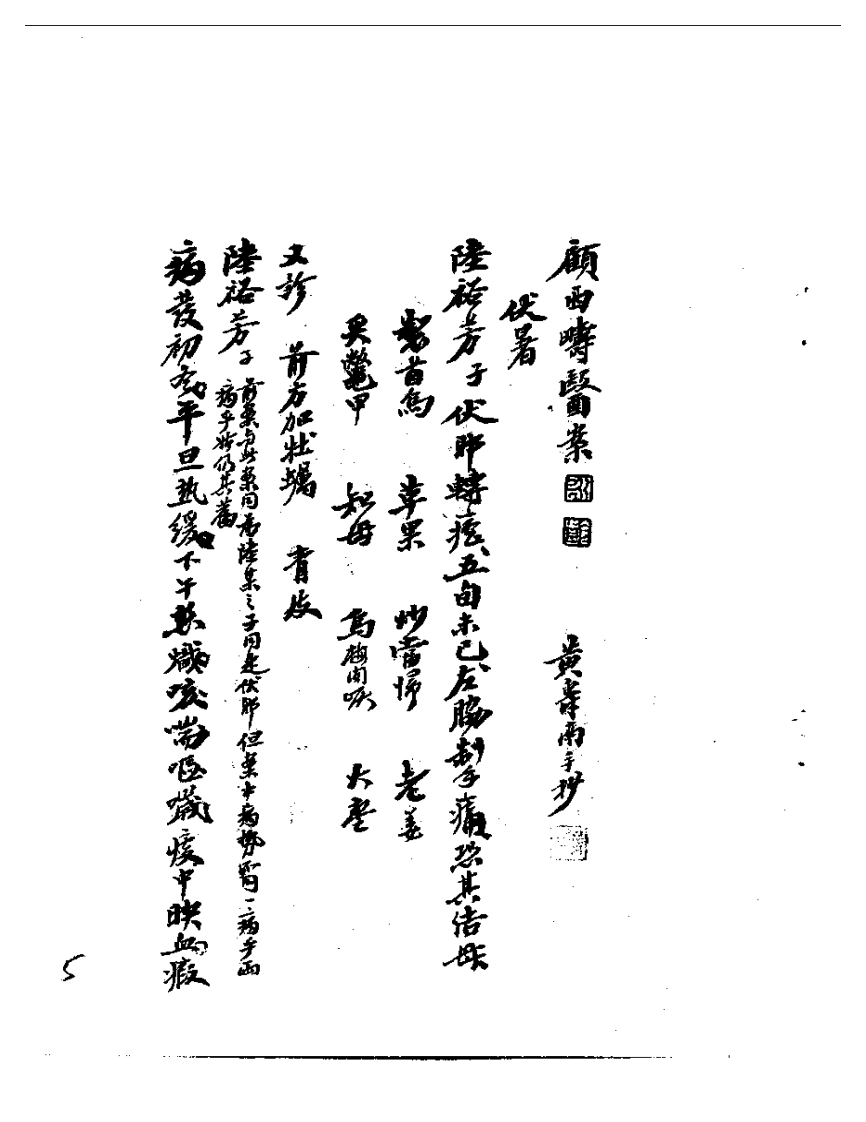 顧西疇醫案 黃壽南手抄
伏暑
陸裕芳子 伏邪轉瘧、五旬未已、左脇掣痛、恐其结母
製首烏 草果 炒當歸 老姜
炙鱉甲 知母 烏梅肉 大棗
又診 前方加牡蠣 青皮
陸裕芳子 前案與此案同為陸某之子同是伏邪但案中病勢 一病乎兩
病乎 仍其舊
病發初 平旦熱緩下午熱熾咳喘嘔噦痰中映血瘕
5